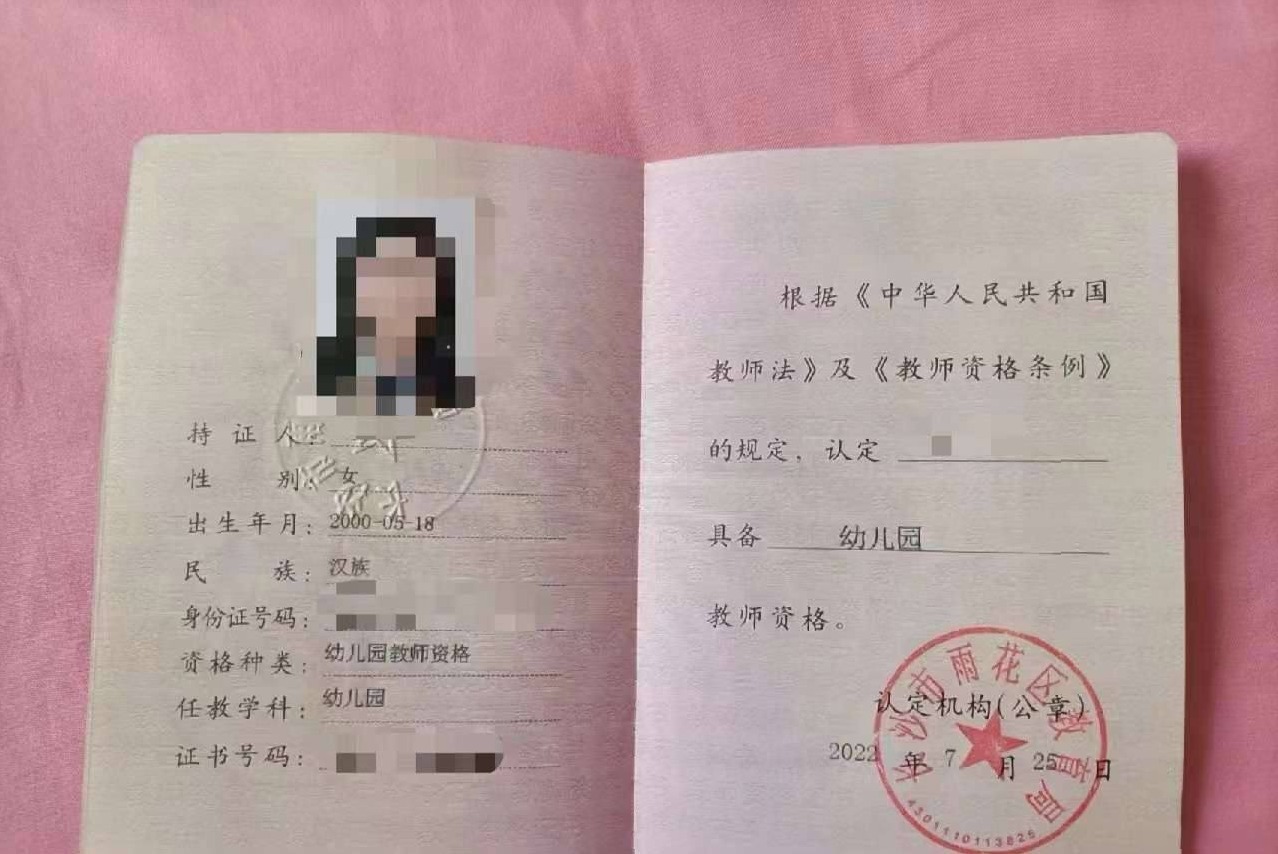 持证人:
性别:女
出生年月:2000-05-18
民族:汉族
身份证号码:
资格种类:幼儿园教师资格
任教学科:幼儿园
证书号码:
根据《中华人民共和国
教师法》及《教师资格条例》
的规定，认定
具备 幼儿园
教师资格。
长沙市雨花区教育局
认定机构(公章)
2022年7月25日
4301110113825